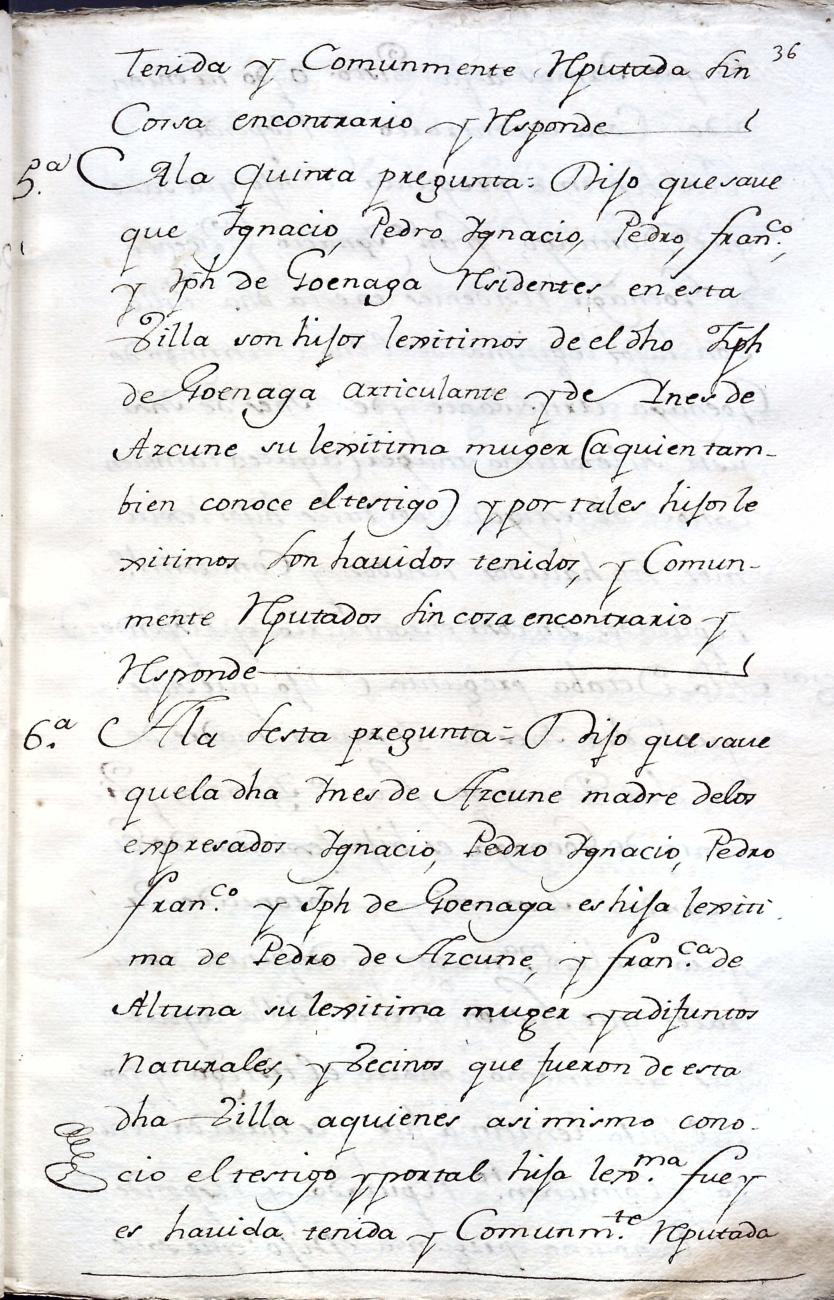 36
tenida y Comunmente Reputada sin
Cossa encontrario y Responde
5.ª Ala quinta pregunta= Dijo que save
que Ignacio, Pedro Ignacio, Pedro, fran.co,
y Jph de Goenaga Residentes en esta
Villa son hijos lexitimos de el dho Jph
de Goenaga articulante y de Ines de
Azcune su lexitima muger (a quien tam-
bien conoce el testigo) y por tales hijos le
xitimos son havidos tenidos, y Comun-
mente Reputados sin cosa encontrario y
Responde
6.ª Ala sesta pregunta= Dijo que save
que la dha Ines de Azcune madre delos
expresados Ignacio, Pedro Ignacio, Pedro
fran.co y Jph de Goenaga es hija lexiti
ma de Pedro de Azcune, y fran.ca de
Altuna su lexitima muger ya difuntos
Naturales, y Vecinos que fueron de esta
dha Villa aquienes asimismo cono-
cio el testigo y por tal hija lex.ma fue y
es havida tenida y Comunm.te Reputada